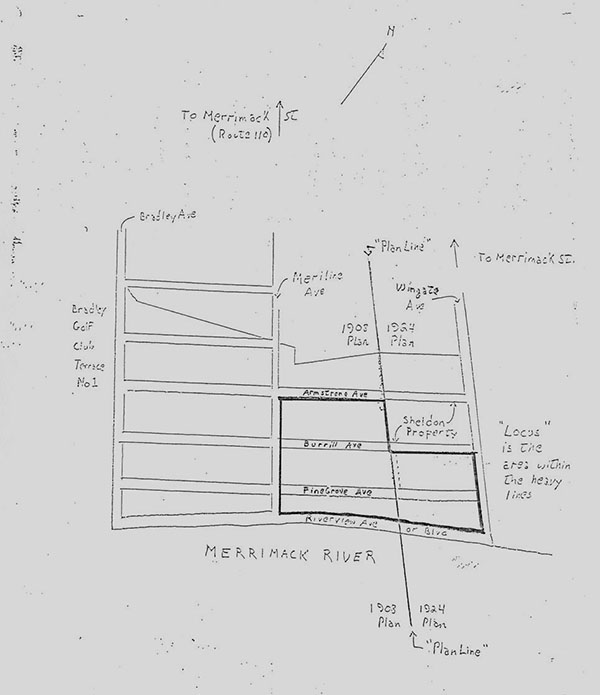 N
To Merrimack St.
(Route 110)
Bradley Ave
"Plan Line"
To Merrimack St.
Merilina
Ave
Wingate
Ave
Bradley
Golf
Club
Terrace
No 1
1903 1924
Plan Plan
Armstrong Ave
Sheldon
Property
Burrill Ave
"Locus"
is the
area within
the heavy
lines
PineGrove Ave
Riverview Ave or Blvd
MERRIMACK RIVER
1903 1924
Plan Plan
"Plan Line"